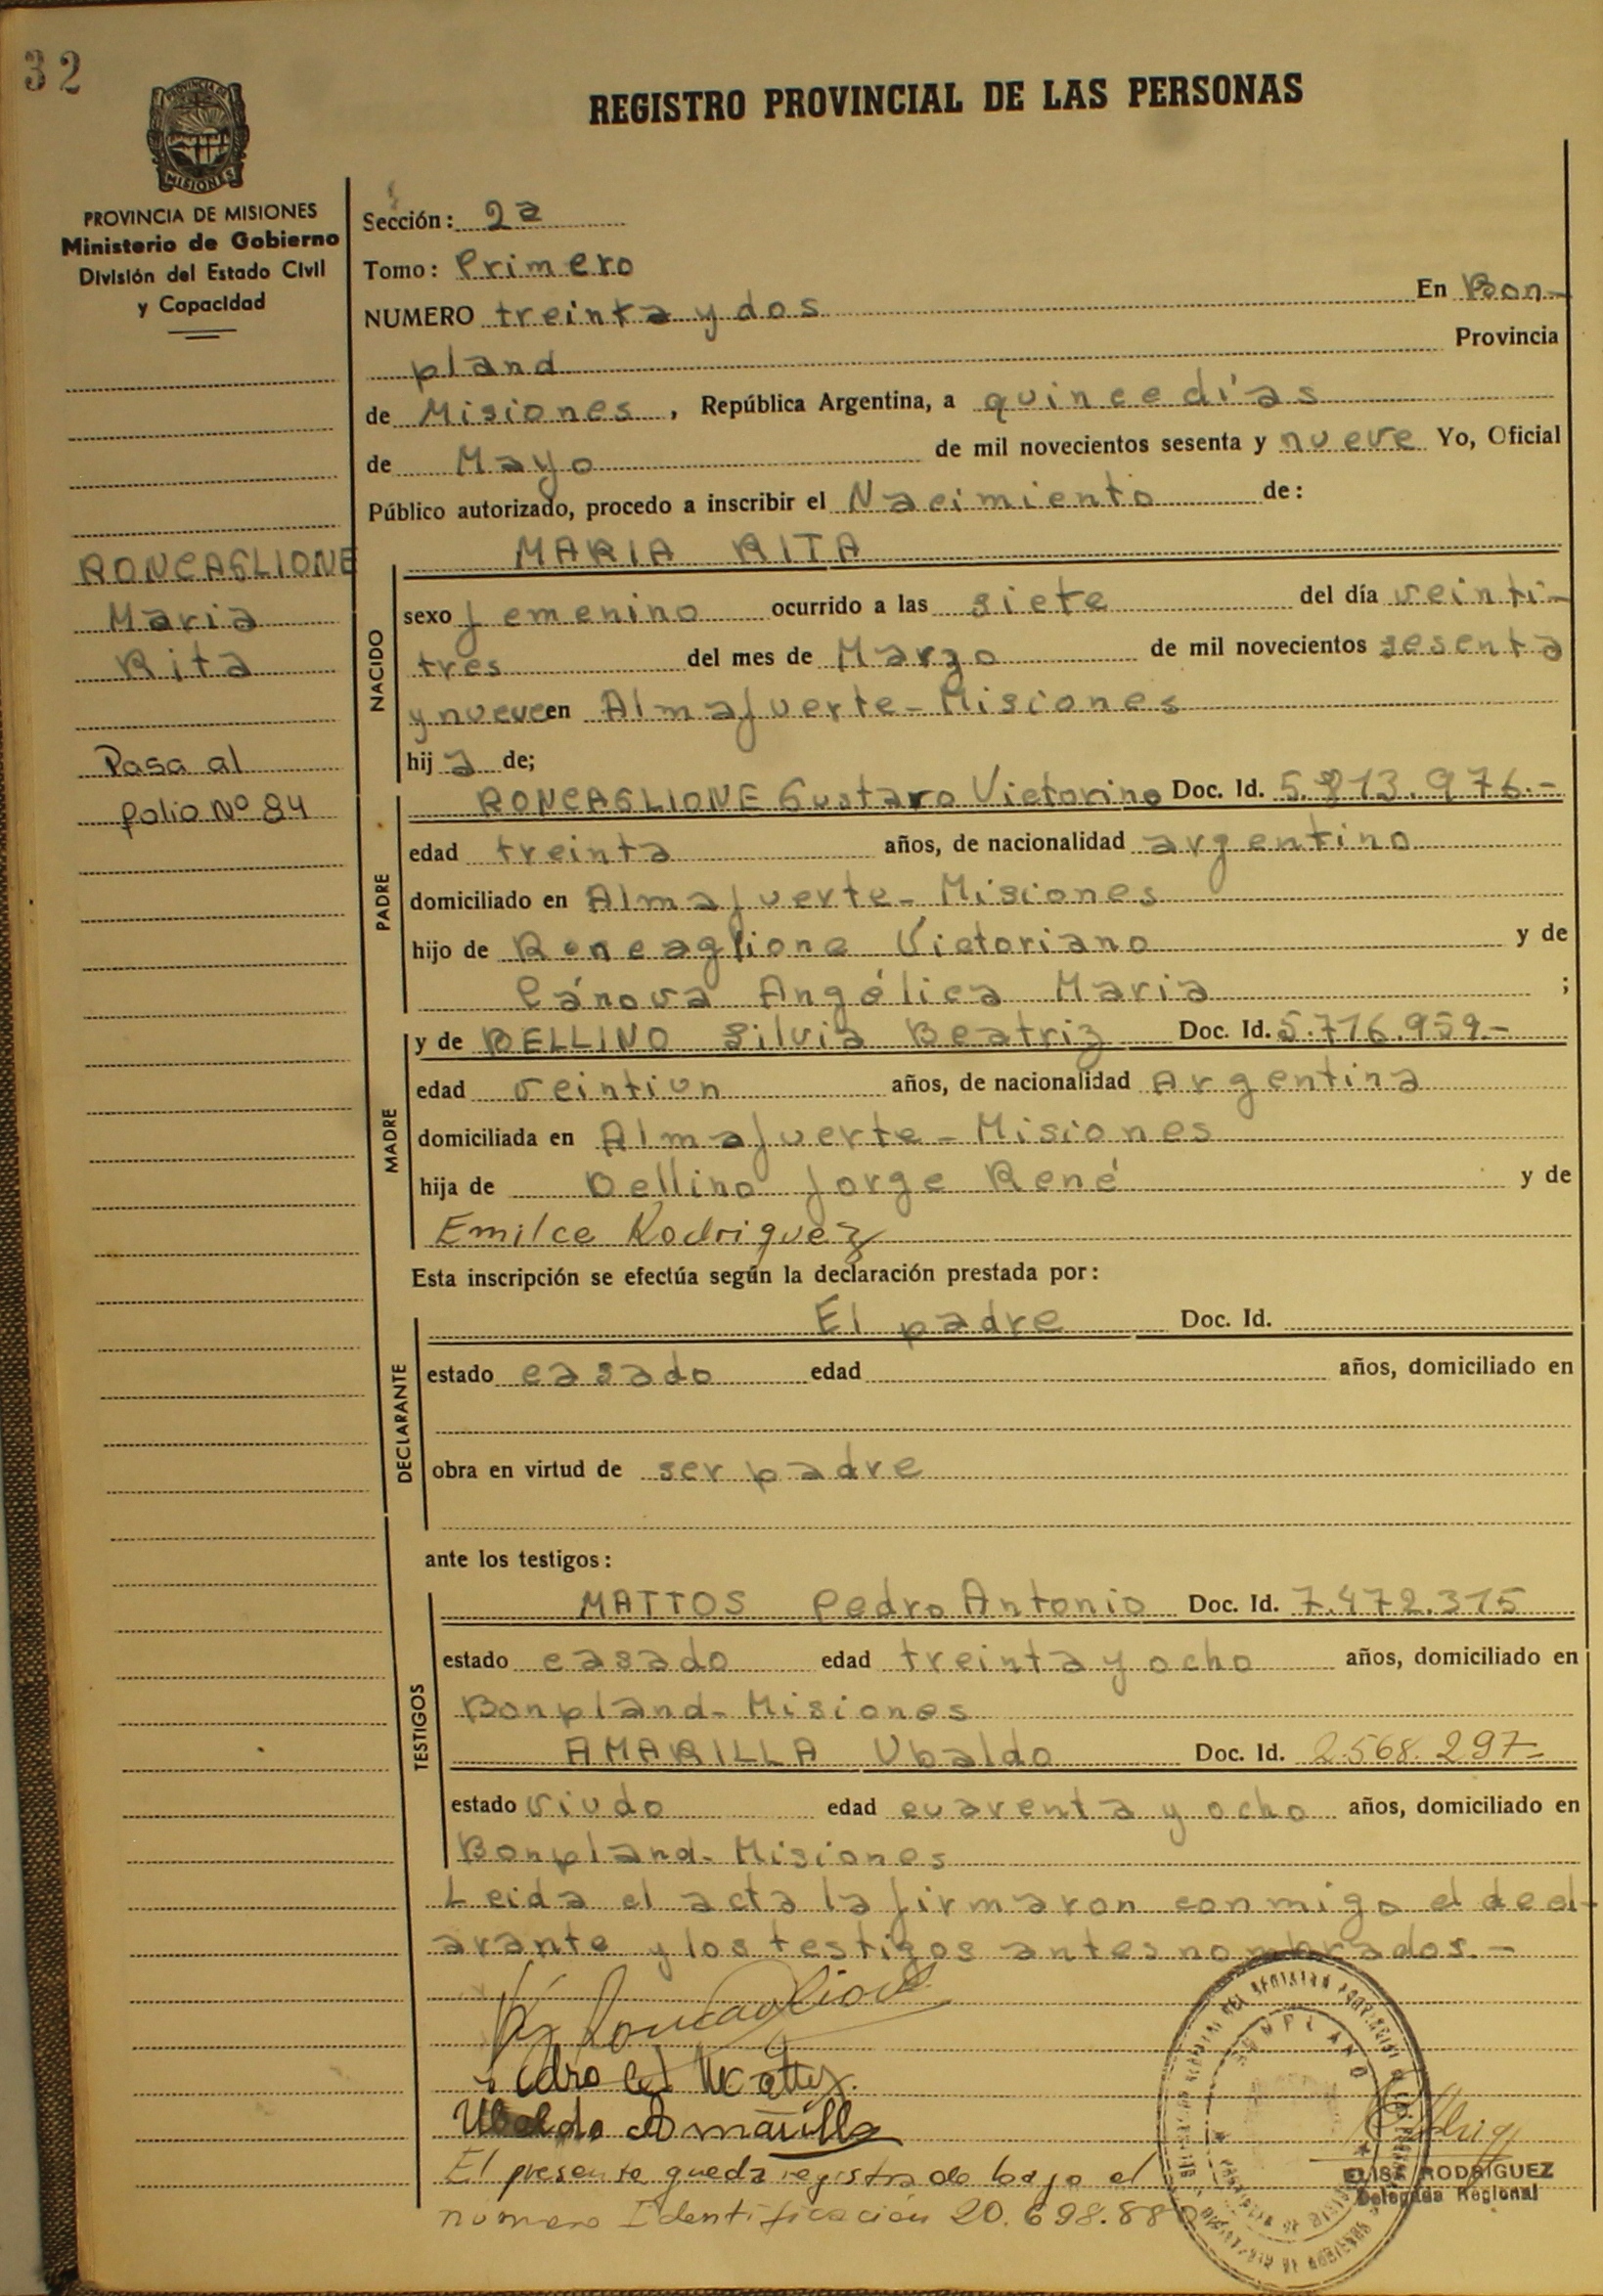 32
REGISTRO PROVINCIAL DE LAS PERSONAS
PROVINCIA DE MISIONES
PROVINCIA DE MISIONES
Ministerio de Gobierno
División del Estado Civil
y Capacidad
RONCAGLIONE
Maria
Rita
Pasa al
folio Nº 84
Sección: 2a
Tomo: Primero
NUMERO treinta y dos En Bon-
pland Provincia
de Misiones, República Argentina, a quince días
de Mayo de mil novecientos sesenta y nueve Yo, Oficial
Público autorizado, procedo a inscribir el Nacimiento de:
MARIA RITA
NACIDO
sexo femenino ocurrido a las siete del día veinti-
tres del mes de Marzo de mil novecientos sesenta
y nueve en Almafuerte - Misiones
hija de;
PADRE
RONCAGLIONE Gustavo Victorino Doc. Id. 5.813.976.-
edad treinta años, de nacionalidad argentino
domiciliado en Almafuerte - Misiones
hijo de Roncaglione Victoriano y de
Cánova Angélica Maria ;
MADRE
y de BELLINO Silvia Beatriz Doc. Id. 5.716.959.-
edad veintiun años, de nacionalidad Argentina
domiciliada en Almafuerte - Misiones
hija de Bellino Jorge René y de
Emilce Rodriguez
Esta inscripción se efectúa según la declaración prestada por:
DECLARANTE
El padre Doc. Id.
estado casado edad años, domiciliado en
obra en virtud de ser padre
ante los testigos:
TESTIGOS
MATTOS Pedro Antonio Doc. Id. 7.472.315
estado casado edad treinta y ocho años, domiciliado en
Bonpland - Misiones
AMARILLA Ubaldo Doc. Id. 2.568.297-
estado viudo edad cuarenta y ocho años, domiciliado en
Bonpland - Misiones
Leida el acta la firmaron conmigo el decl-
arante y los testigos antes nombrados.-
Roncaglione
Pedro A Mattos
Ubaldo Amarilla
BONPLAND
ELISA RODRIGUEZ
Delegada Regional
El presente queda registrado bajo el
numero Identificación 20.698.88